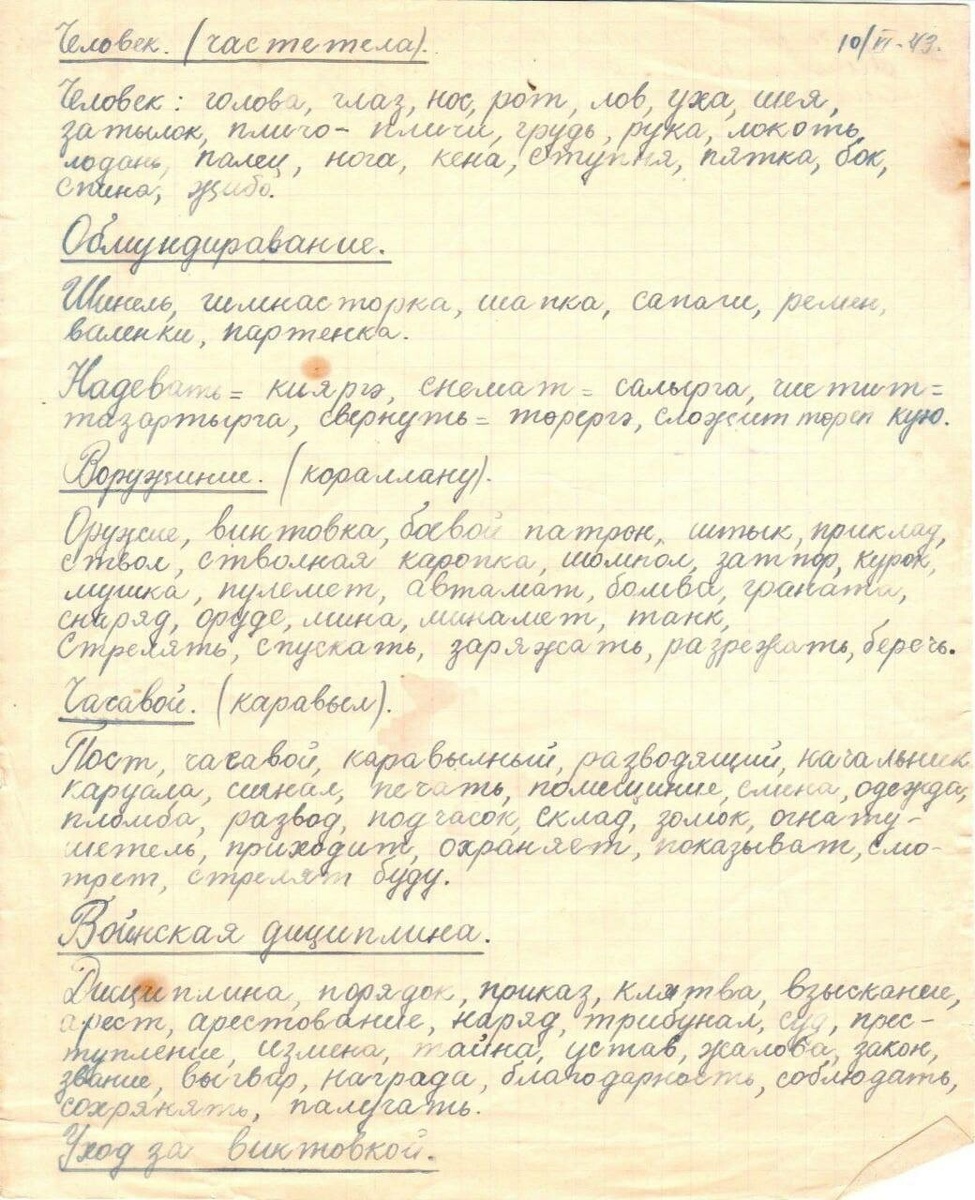 Человек. (частетела). 10/VI-43.
Человек: голова, глаз, нос, рот, лов, уха, шея,
затылок, пличо - пличи, грудь, рука, локоть,
лодань, палец, нога, кена, ступня, пятка, бок,
спина, жибо.
Обмундиравание.
Шинель, гимнасторка, шапка, сапаги, ремен,
валенки, партенка.
Надевать = киярга, снемат = салырга, чистит =
тазартырга, свернуть = төрергә, сложит төреп кую.
Воружиние. (кораллану).
Оружие, винтовка, боевой патрон, штык, приклад,
ствол, стволная каропка, шомпол, затпор, курок,
мушка, пулемет, автамат, бомба, граната,
снаряд, оруде, мина, минамет, танк,
Стрелять, спускать, заряжать, разрежать, беречь.
Часавой. (каравыл).
Пост, часавой, каравылный, разводящий, начальник
каруала, сигнал, печать, помещиние, смена, одежда,
пломба, развод, подчасок, склад, золок, огнату-
шетель, приходит, охраняет, показыват, смо-
трет, стрелят буду.
Воинская дициплина.
Дисциплина, порядок, приказ, клятва, взыскание,
арест, арестование, наряд, трибунал, суд, прес-
тупление, измена, тайна, устав, жалова, закон,
звание, выгвар, награда, благодарность, соблюдать,
сохрянять, палучать.
Уход за винтовкой.